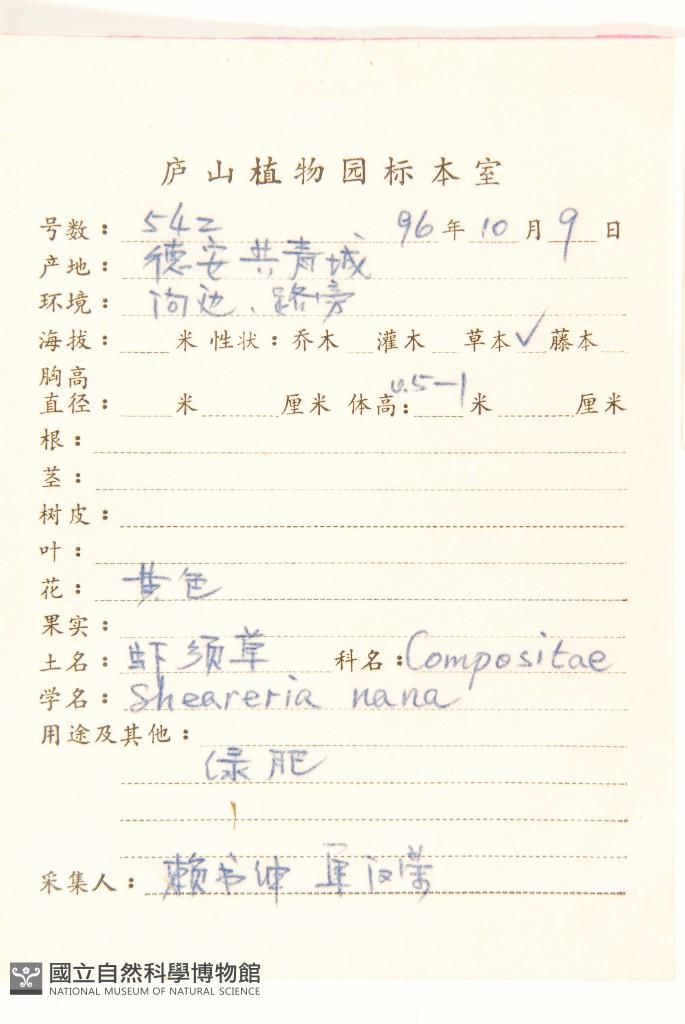 庐山植物园标本室
号数：542 96年10月9日
产地：德安共青城
环境：沟边、路旁
海拔： 米 性状：乔木 灌木 草本✓ 藤本
胸高
直径： 米 厘米 体高：0.5—1米 厘米
根：
茎：
树皮：
叶：
花：黄色
果实：
土名：虾须草 科名：Compositae
学名：Sheareria nana
用途及其他：
绿肥
采集人：赖书绅
國立自然科學博物館
NATIONAL MUSEUM OF NATURAL SCIENCE